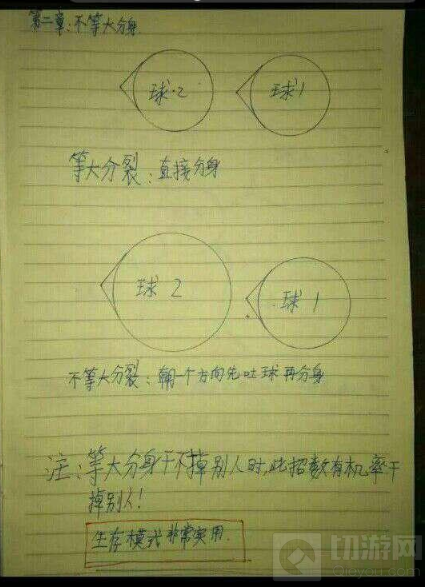 第二章:不等大分身
球2
球1
等大分裂:直接分身
球2
球1
不等大分裂:朝一个方向先吐球再分身
注:等大分身干不掉别人时,此招数有机率干
掉别人!
生存模式非常实用.
切游网
qieyou.com